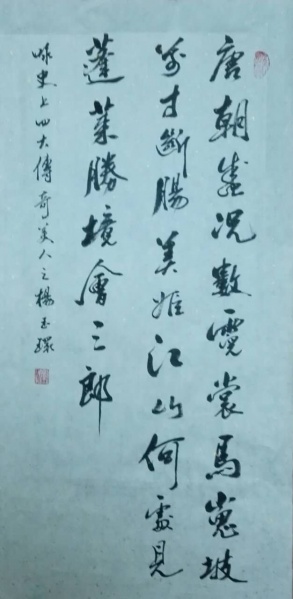 唐朝盛况数霓裳馬嵬坡
前寸斷腸美姬江山何處見
蓬萊勝境會三郎
咏史上四大傳奇美人之楊玉環